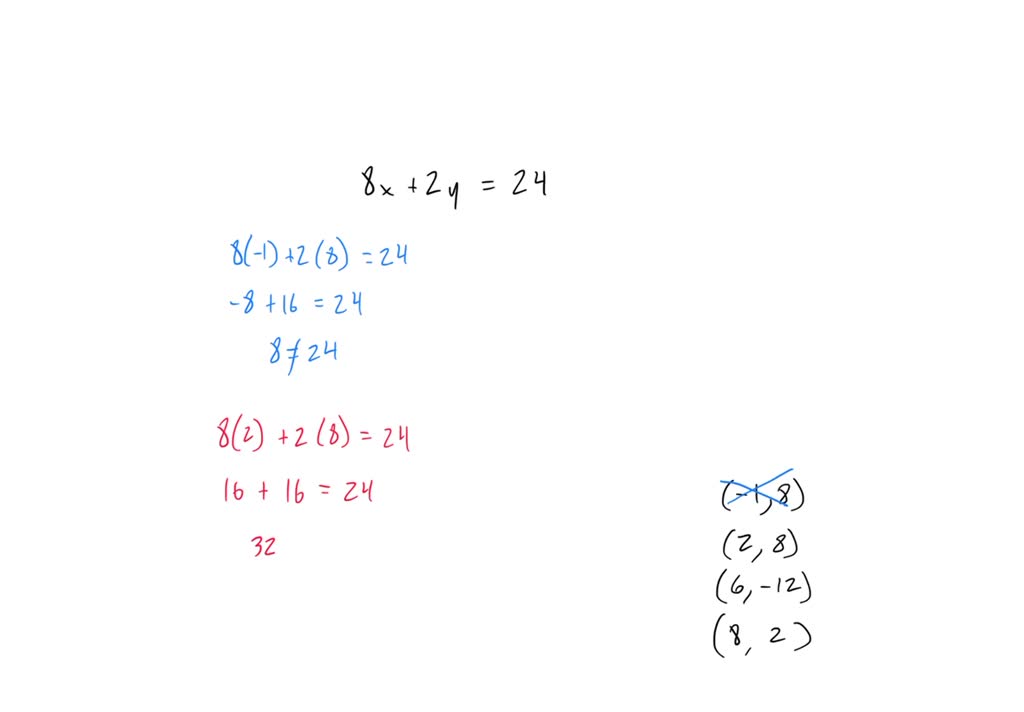 8x + 2y = 24
8(-1) + 2(8) = 24
-8 + 16 = 24
8 ≠ 24
8(2) + 2(8) = 24
16 + 16 = 24
32
(-1, 8)
(2, 8)
(6, -12)
(8, 2)